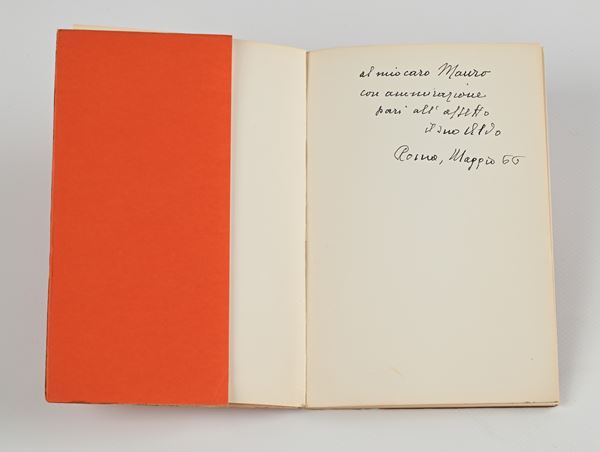 al mio caro Mauro
con ammirazione
pari all'affetto
il suo Aldo
Roma, Maggio 66